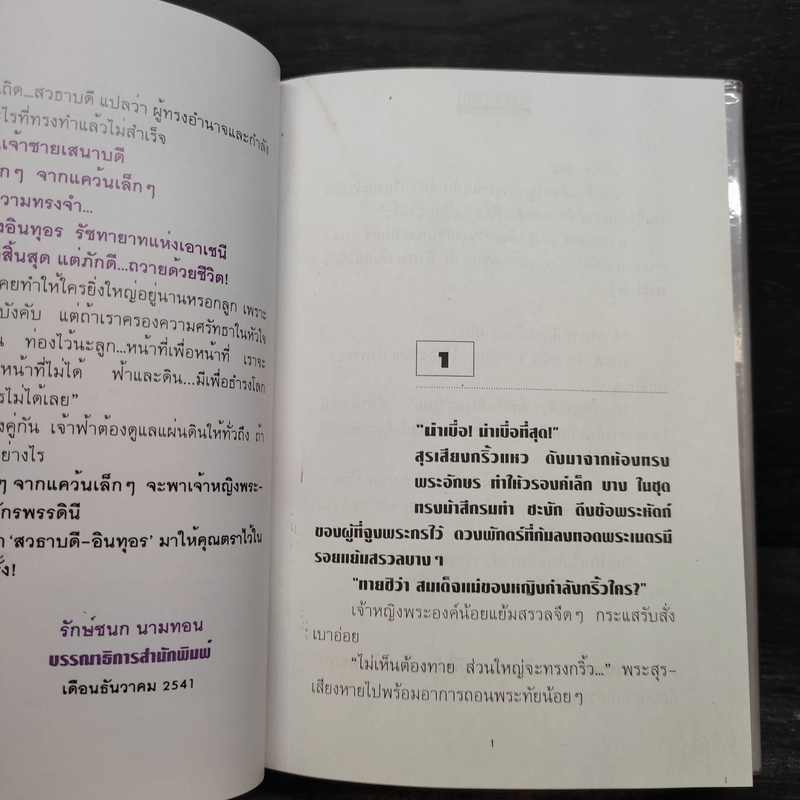 เถิด...สวธาบดี แปลว่า ผู้ทรงอำนาจและกำลัง
ไรที่ทรงทำแล้วไม่สำเร็จ
เจ้าชายเสนาบดี
ๆ จากแคว้นเล็กๆ
ความทรงจำ...
อินทุอร รัชทายาทแห่งเอาเชนี
สิ้นสุด แต่ภักดี...ถวายด้วยชีวิต!
คยทำให้ใครยิ่งใหญ่อยู่นานหรอกลูก เพราะ
บังคับ แต่ถ้าเราครองความศรัทธาในหัวใจ
น ท่องไว้นะลูก...หน้าที่เพื่อหน้าที่ เราจะ
หน้าที่ไม่ได้ ฟ้าและดิน...มีเพื่อธำรงโลก
ไม่ได้เลย”
คู่กัน เจ้าฟ้าต้องดูแลแผ่นดินให้ทั่วถึง ถ้า
อย่างไร
ๆ จากแคว้นเล็กๆ จะพาเจ้าหญิงพระ-
จักรพรรดินี
‘สวธาบดี-อินทุอร’ มาให้คุณตราไว้ใน
รักษ์ชนก นามทอน
บรรณาธิการสำนักพิมพ์
เดือนธันวาคม 2541
1
"น่าเบื่อ! น่าเบื่อที่สุด!"
สุรเสียงกริ้วแหว ดังมาจากห้องทรง
พระอักษร ทำให้วรองค์เล็ก บาง ในชุด
ทรงม้าสีกรมท่า ชะงัก ดึงข้อพระหัตถ์
ของผู้ที่จูงพระกรไว้ ดวงพักตร์ที่ก้มลงทอดพระเนตรมี
รอยแย้มสรวลบางๆ
"ทายซิว่า สมเด็จแม่ของหญิงกำลังกริ้วใคร?"
เจ้าหญิงพระองค์น้อยแย้มสรวลจืดๆ กระแสรับสั่ง
เบาอ่อย
“ไม่เห็นต้องทาย ส่วนใหญ่จะทรงกริ้ว...” พระสุร-
เสียงหายไปพร้อมอาการถอนพระทัยน้อยๆ
1